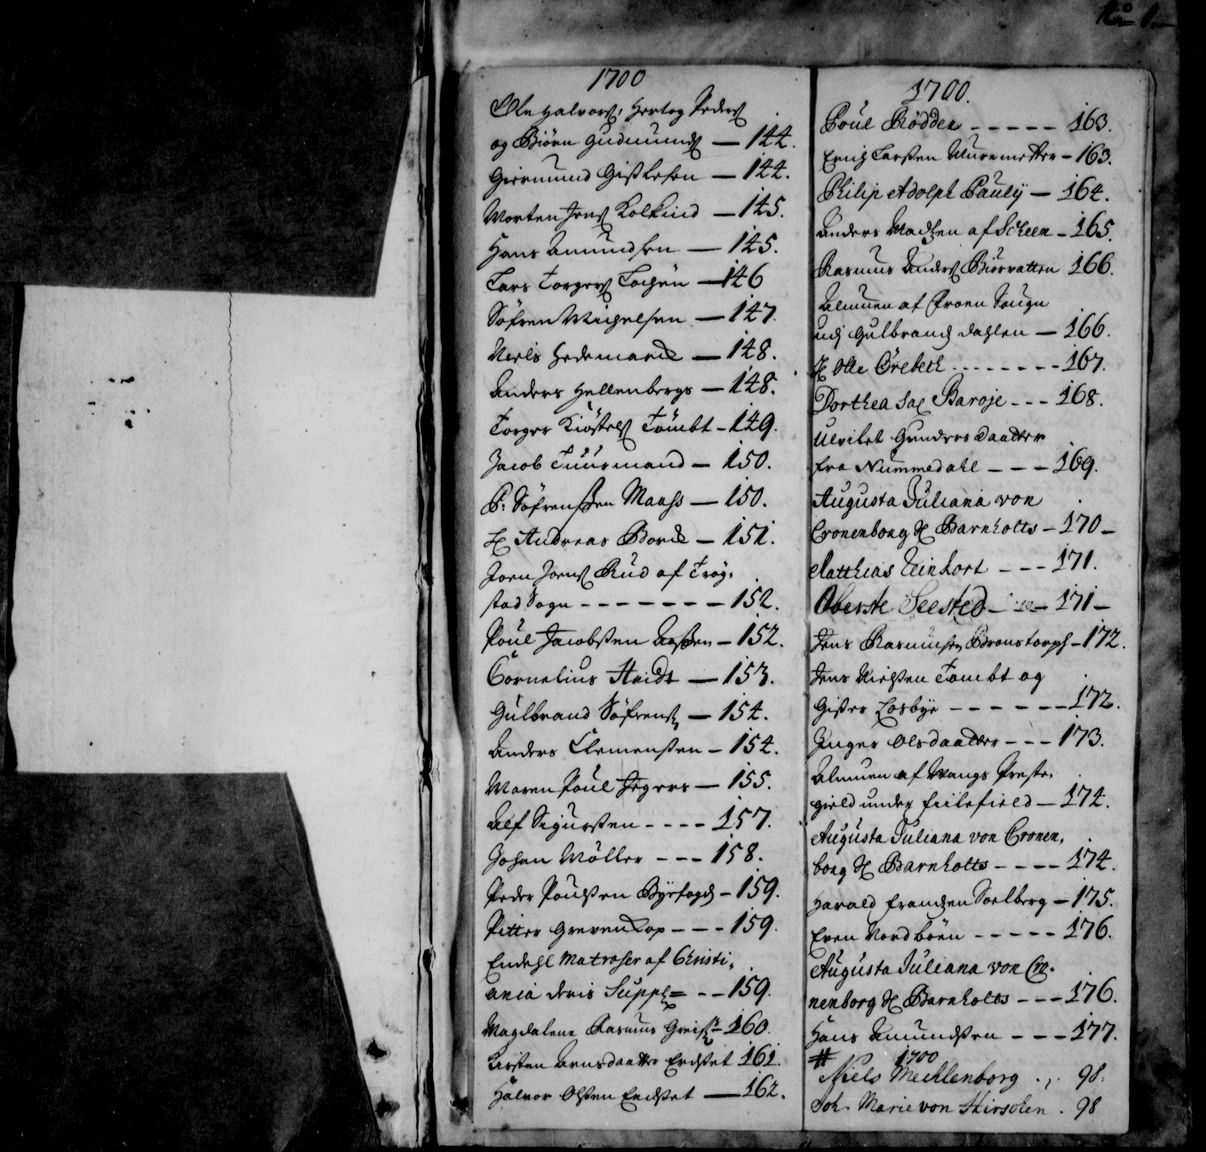 No 1
1700
Ole Halvors, Hertog Peders
og Biörn Gudmunds — 144.
Giermund Gislesen — 144.
Morten Jens Kolkind — 145.
Hans Amundsen — 145.
Lars Torgers — 146
Söfren Michelsen — 147.
Niels Hedemark — 148.
Anders Hellenbergs — 148.
Torger Kiöstels Tombt — 149.
Jacob Tuurmand — 150.
P: Söfrenssen Maass — 150.
Hr Andreas Bord — 151.
Joen Joens Rud af Trög,
stad Sogn - - - - - - - 152.
Poul Jacobsen — 152.
Cornelius Hvidt — 153.
Gulbrand Söfrens — 154.
Anders Clemensen — 154.
Maren Poul Jegers — 155.
Alf Sigursen - - - - 157.
Johan Möller - - - 158.
Peder Poulsen Byefogd — 159.
Pitter Grevenkop - - - 159.
Endehl Matroser af Christi,
ania deris Suppl= - - 159.
Magdalena Rasmus — 160.
Kirsten Arnsdaatter Endstet 161.
Halvor Olsen Endstet — 162.
1700.
Poul Rödder - - - - - 163.
Erich Larsen Muremester — 163.
Philip Adolph Pauly — 164.
Anders Madsen af Scheen — 165.
Rasmus Anders Biörvatten 166.
Almuen af Froen Sougn
udj Gulbrands dahlen — 166.
Hr Otte Örebech - - - - - - - - 167.
Dorthea Sal Baroje - - - 168.
Gunders daatter
fra Nummedahl - - - 169.
Augusta Juliana von
Cronenborg Hr Barnholts — 170 —
Matthias Teinhort - - - 171.
Oberste Seested — 171 —
Jens Rasmusen Bronstorph — 172.
Jens Nielsen Tombt og
Gister Losbye - - - - - - 172.
Inger Olsdaatter - - - 173.
Almuen af Wangs Preste,
gield under Filefield — 174.
Augusta Juliana von Cronen,
borg Hr Barnholts - - - - 174.
Harald Frandsen Soelberg — 175.
Even Nordböen - - - - - 176.
Augusta Juliana von Cro,
nenborg Hr Barnholts - - - 176.
Hans Amundsen - - - 177.
# 1700
Niels Mecklenborg . , 98.
Joh. Marie von Hirschen . 98